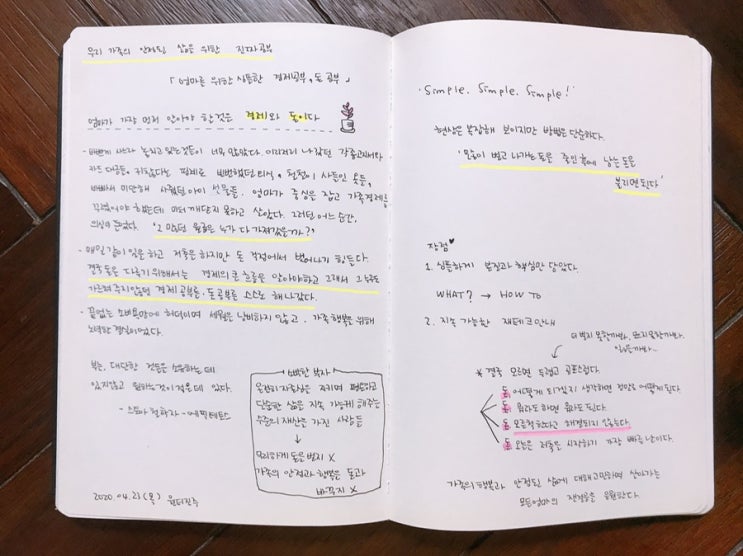 우리 가족의 안정된 삶을 위한 진짜 공부
「엄마를 위한 심플한 경제공부, 돈 공부」
엄마가 가장 먼저 알아야 할 것은 경제와 돈이다
- 바쁘게 사느라 놓치고 있는것들이 너무 많았다. 이자처리 나갔던 각종고지서와
카드 대금들, 귀찮다는 핑계로 외식, 철철이 사들인 옷들,
바빠서 미안해 사줬던 아이 선물들. 엄마가 중심을 잡고 가족경제를
꾸렸어야 했는데 미처 깨닫지 못하고 살았다. 그러던 어느 순간,
의심이 들었다. "그 많던 월급은 누가 다 가져갔을까?"
- 매일 같이 일을 하고 저축은 하지만 돈 걱정에서 벗어나기 힘들다.
결국 돈을 다루기 위해서는 경제의 큰 흐름을 알아야하고 그래서 그 누구도
가르쳐 주지 않았던 경제 공부를, 돈 공부를 스스로 해나갔다.
- 끝없는 소비욕망에 허덕이며 세월을 낭비하지 않고, 가족 행복을 위해
노력한 결실이었다.
부는, 대단한 것들을 소유하는 데
있지않고 원하는것이 적은데 있다.
- 스토아 철학자 - 에픽테토스
빠른 부자
온전히 자존심은 지키며 평온하고
단순한 삶을 지속 가능케 해주는
수준의 재산을 가진 사람들
↓
무리하게 돈을 벌지 X
가족의 안정과 행복을 돈과
바꾸지 X
2020.04.23(목)
'Simple. Simple. Simple!'
현상은 복잡해 보이지만 방법은 단순하다.
'많이 벌고 나가는 돈을 줄인 후에 남는 돈을
불리면 된다'
장점♥
1. 심플하게 본질과 핵심만 담았다.
WHAT? → HOW TO
2. 지속 가능한 재테크 안내
더 벌지 못할까봐, 뜨지 못할까봐,
잃을까봐...
* 결국 모르면 두렵고 공포스럽다.
돈 어떻게 되겠지 생각하면 정말로 어떻게 된다.
돈 뭐라도 하면 뭐라도 된다.
돈 모른척한다고 해결되지 않는다.
돈 오늘은 저축을 시작하기 가장 빠른 날이다.
가족의 행복과 안정된 삶에 대해 고민하며 살아가는
모든 엄마의 잔걱정을 응원한다.